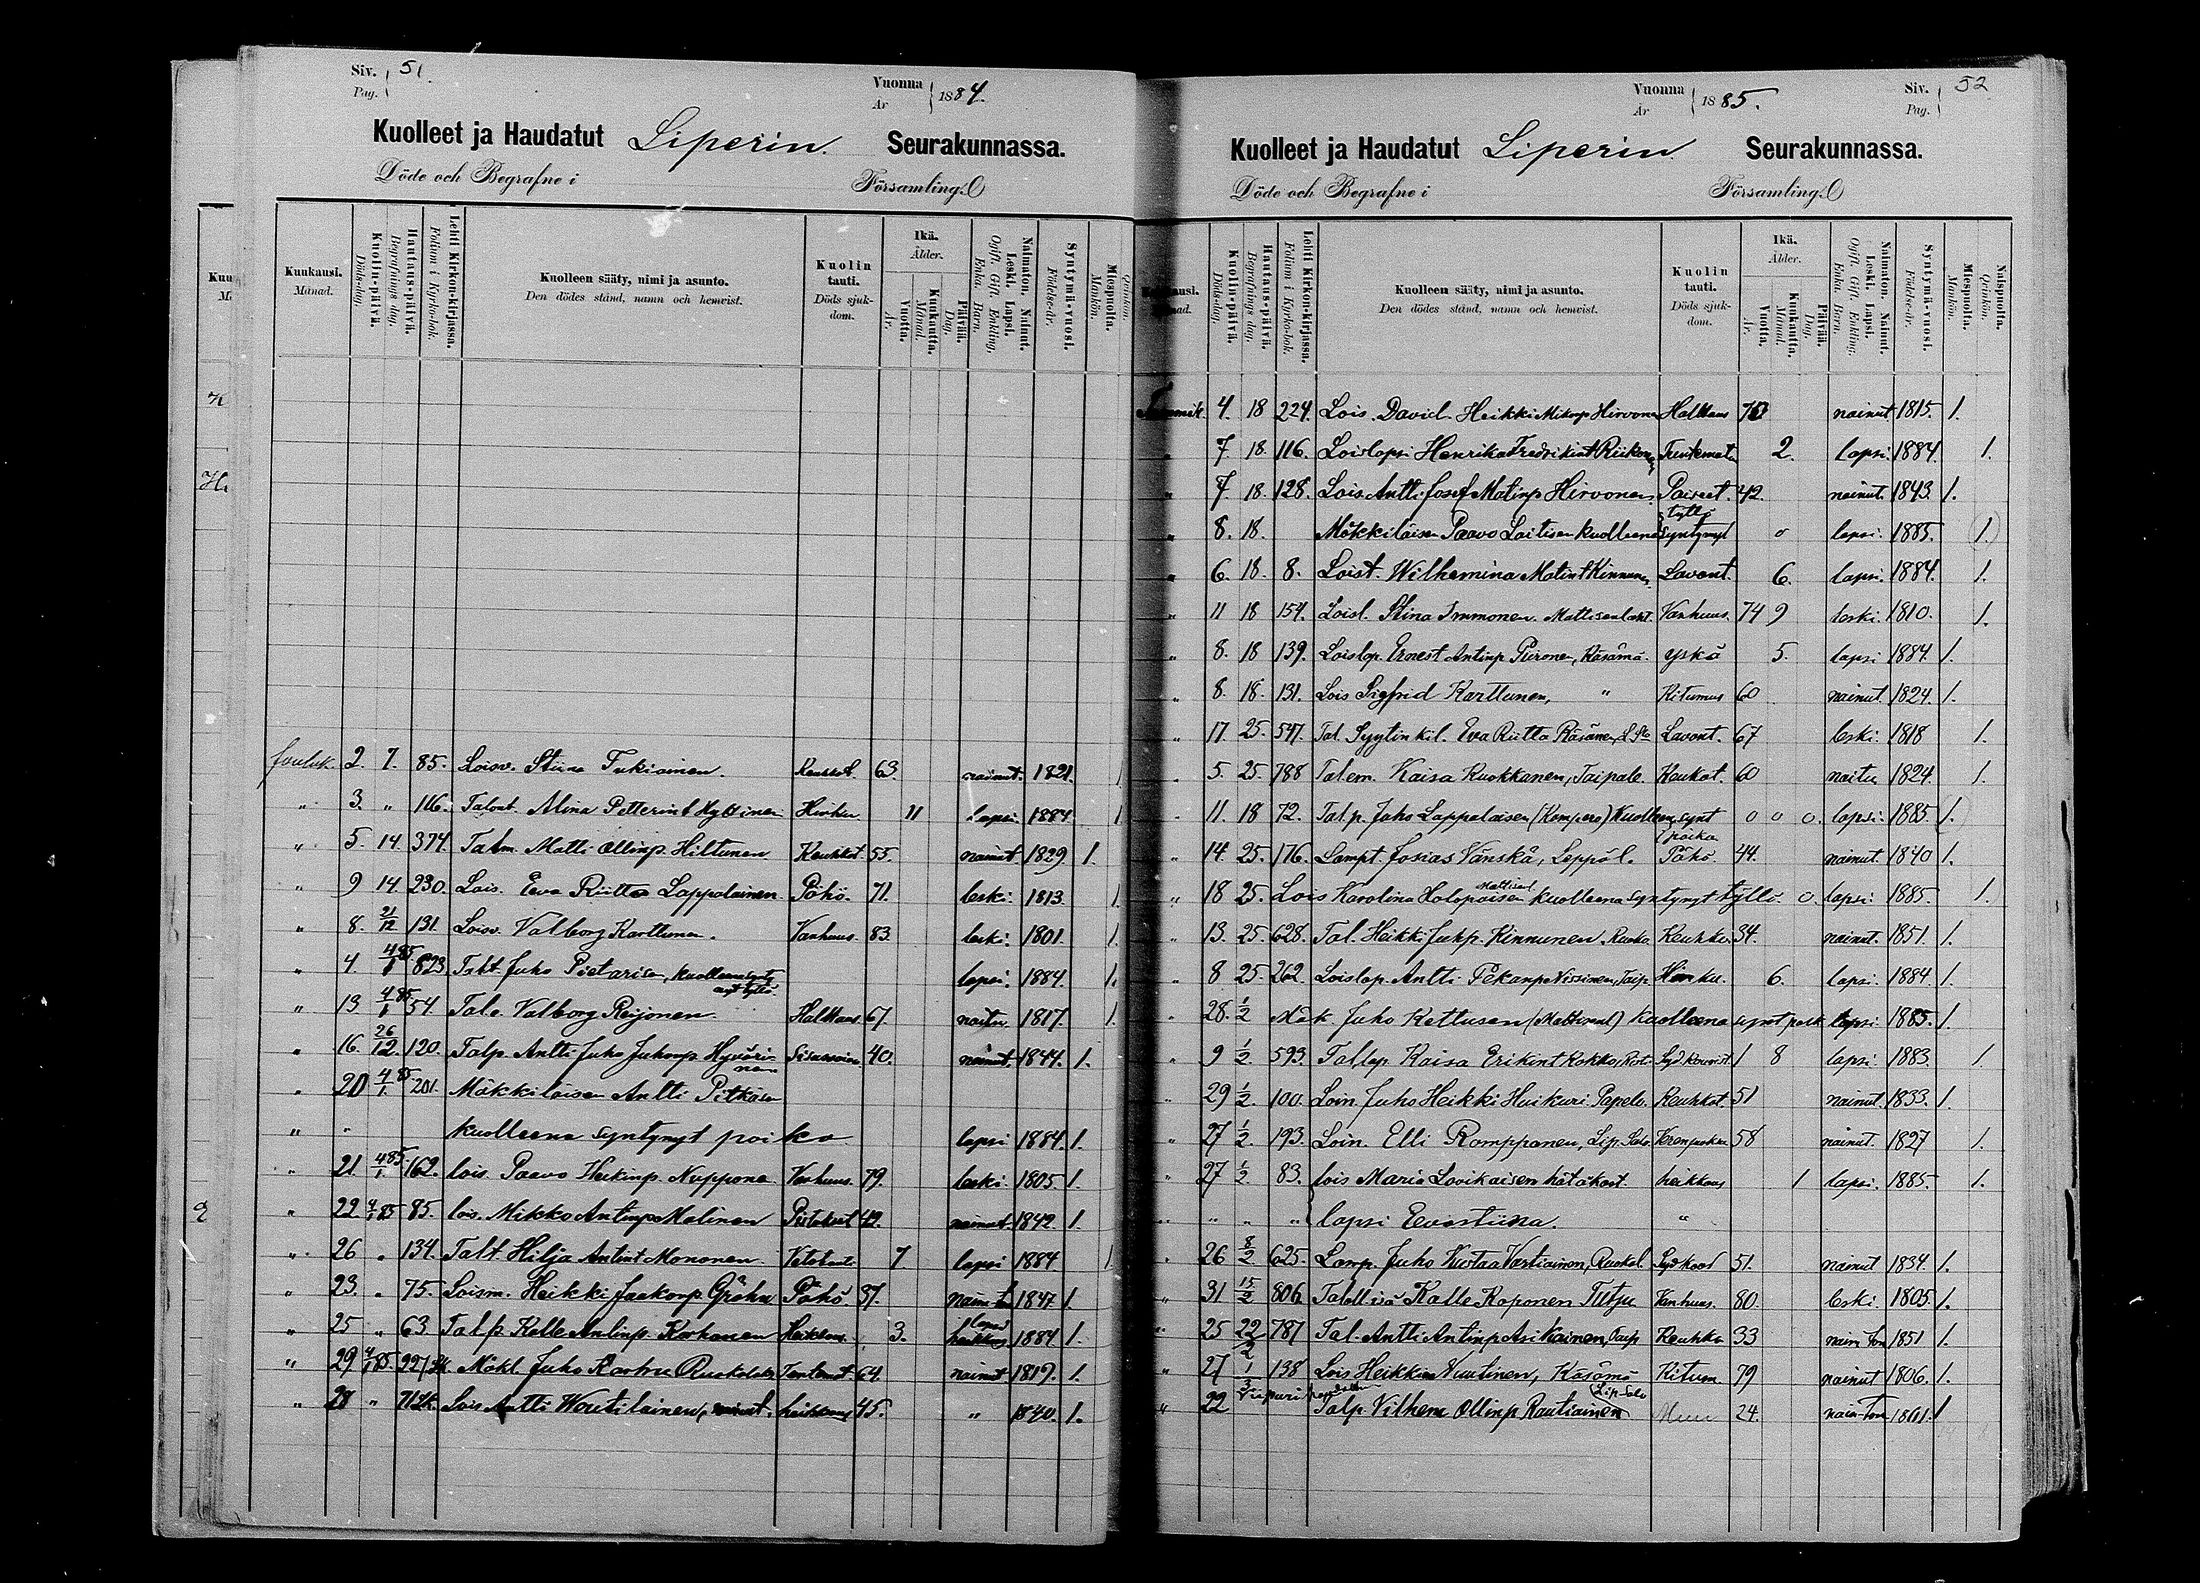 Siv. 51.
Pag.
Vuonna 1884.
År
Kuolleet ja Haudatut Liperin Seurakunnassa.
Döde och Begrafne i Församling.
Kuukausi. Månad.
Kuolin-päivä. Döds-dag.
Hautaus-päivä. Begrafnings dag.
Lehti Kirkon-kirjassa. Folium i Kyrko-bok.
Kuolleen sääty, nimi ja asunto.
Den dödes stånd, namn och hemvist.
Kuolin tauti. Döds sjukdom.
Ikä. Ålder.
Vuotta. År.
Kuukautta. Månad.
Päivää. Dag.
Naimaton. Nainut. Leski. Lapsi.
Ogift. Gift. Enkling, Enka. Barn.
Syntymä-vuosi. Födelse-år.
Miespuolta. Mankön.
Qvinkön.
Jouluk. 2. 7. 85. Loisv. Stiina Tukiainen. Keuhkot. 63. nainut. 1821. 1
" 3. " 116. Talont. Alina Petterint Hyttinen Hinku 11 lapsi. 1884 1
" 5. 14. 374. Talm. Matti Ollinp. Hiltunen Keuhkot 55. nainut 1829 1.
" 9 14. 230. Lois. Eva Riitta Lappalainen Pöhö. 71. leski. 1813. 1.
" 8. 21/12 131. Loisv. Valborg Karttunen. Vanhuus. 83. leski. 1801. 1.
" 4. 4/1 85 823 Talt. Juho Pietarisen, kuolleena synty
nyt tyttö. lapsi. 1884. 1.
" 13 4/1 85 54. Tale. Valborg Reijonen. Halkaus. 67. naitu 1817. 1.
" 16. 26/12 120. Talp. Antti Juho Juhonp. Hyväri-
nen 40. nainut. 1844. 1.
" 20 4/1 85 201. Mökkiläisen Antti Pitkäsen
" " kuolleena syntynyt poika lapsi 1884. 1.
" 21. 4/1 85. 162. lois. Paavo Heikinp. Nuppone Vanhuus. 79. leski. 1805. 1.
" 22. 4/1 85 85. lois. Mikko Antinp Malinen Pistokset 42. nainut. 1842. 1.
" 26 " 134. Talt. Hilja Antint Mononen. 7 lapsi 1884 1
" 23. " 75. Loism. Heikki Jaakonp. Gröhn Pöhö. 37. 1847 1.
" 25 " 63 Talp. Kalle Antinp. Korhonen Heikkous. 3. lapsi 1884 1.
" 29 4/1 85. 221 Mökl. Juho Karhu 64. nainut 1819. 1.
" 28 " Lois Antti Woutilainen, heikkous 45. " 1840. 1.
Siv. 52
Pag.
Vuonna 1885.
År
Kuolleet ja Haudatut Liperin Seurakunnassa.
Döde och Begrafne i Församling.
Kuolin-päivä. Döds-dag.
Hautaus-päivä. Begrafnings dag.
Lehti Kirkon-kirjassa. Folium i Kyrko-bok.
Kuolleen sääty, nimi ja asunto.
Den dödes stånd, namn och hemvist.
Kuolin tauti. Döds sjukdom.
Ikä. Ålder.
Vuotta. År.
Kuukautta. Månad.
Päivää. Dag.
Naimaton. Nainut. Leski. Lapsi.
Ogift. Gift. Enkling. Enka. Barn.
Syntymä-vuosi. Födelse-år.
Miespuolta. Mankön.
Naispuolta. Qvinkön.
4. 18 224. Lois. David Heikki Mikonp Hirvone Halkaus 70 nainut 1815. 1.
" 7. 18. 116. Loislapsi Henrika Fredrikint Riikone Tuntemat. 2. lapsi. 1884. 1.
" 7. 18. 128. Lois. Antti Josef Matinp Hirvonen Paiseet. 42. nainut. 1843. 1.
" 8. 18. Mökkiläisen Paavo Laitisen kuolleena syntynyt
tyttö 0 lapsi. 1885. (1.)
" 6. 18. 8. Loist. Wilhemina Matint Kinnunen Lavant. 6. lapsi. 1884. 1.
" 11 18 154. Loisl. Stina Immonen. Mattisenlaht. Vanhuus. 74 9 leski. 1810. 1.
" 8. 18 139. Loislap. Ernest Antinp Piironen, Käsämä. yskä 5. lapsi 1884. 1.
" 8. 18. 131. Lois Sigfrid Karttunen, " Kitumus 60 nainut. 1824. 1.
" 17. 25. 547. Tal. Syytinkil. Eva Riitta Räsänen, Lavant. 67 leski. 1818 1.
" 5. 25. 788 Talem. Kaisa Kuokkanen, Taipale. Keuhkot. 60 naitu 1824. 1.
" 11. 18 72. Talp. Juho Lappalaisen (Kompero) Kuolleena synt
poika 0 0 0. lapsi. 1885. (1.)
" 14. 25. 176. Lampt. Josias Vänskä, Leppäl. Pöhö. 44. nainut. 1840 1.
" 18 25. Lois Karolina Holopaisen Mattisenl kuolleena syntynyt tyttö. 0. lapsi. 1885. 1.
" 13. 25. 628. Tal. Heikki Juhp. Kinnunen, Ruoko. Keuhko. 34. nainut. 1851. 1.
" 8 25. 262 Loislap. Antti Pekanp Nissinen, Taip Hinku. 6. lapsi. 1884. 1.
" 28. 1/2 Mök. Juho Kettusen (Mattisenl) kuolleena synt poik lapsi. 1885. 1.
" 9 1/2 593. Tallap. Kaisa Erikint Kokko, 1 8 lapsi 1883. 1.
" 29 1/2. 100. Loin. Juho Heikki Huikuri Papelo. Keuhkot. 51 nainut. 1833. 1.
" 27 1/2. 193. Loin. Elli Romppanen, Lip. Salo. 58 nainut. 1827 1.
" 27 1/2. 83. lois Maria Lovikaisen hätäkast. heikkous 1 lapsi. 1885. 1.
" " " " lapsi Evastiina. "
" 26 8/2 625. Lamp. Juho Kustaa Vertiainen, Ruokol. 51. nainut 1834. 1.
" 31 15/2 806 Talollisisä Kalle Koponen Tutju Vanhuus. 80. leski. 1805. 1.
" 25 22/2 787 Tal. Antti Antinp Asikainen, Taip Keuhko 33 naimaton 1851 1.
" 27 1/3 138 Lois Heikki Vuutinen, Käsämä Kitum 79 nainut 1806. 1.
" 22 Viapuri Talp. Vilhem Ollinp Rautiainen Lip. Salo 24. naimaton 1861. 1